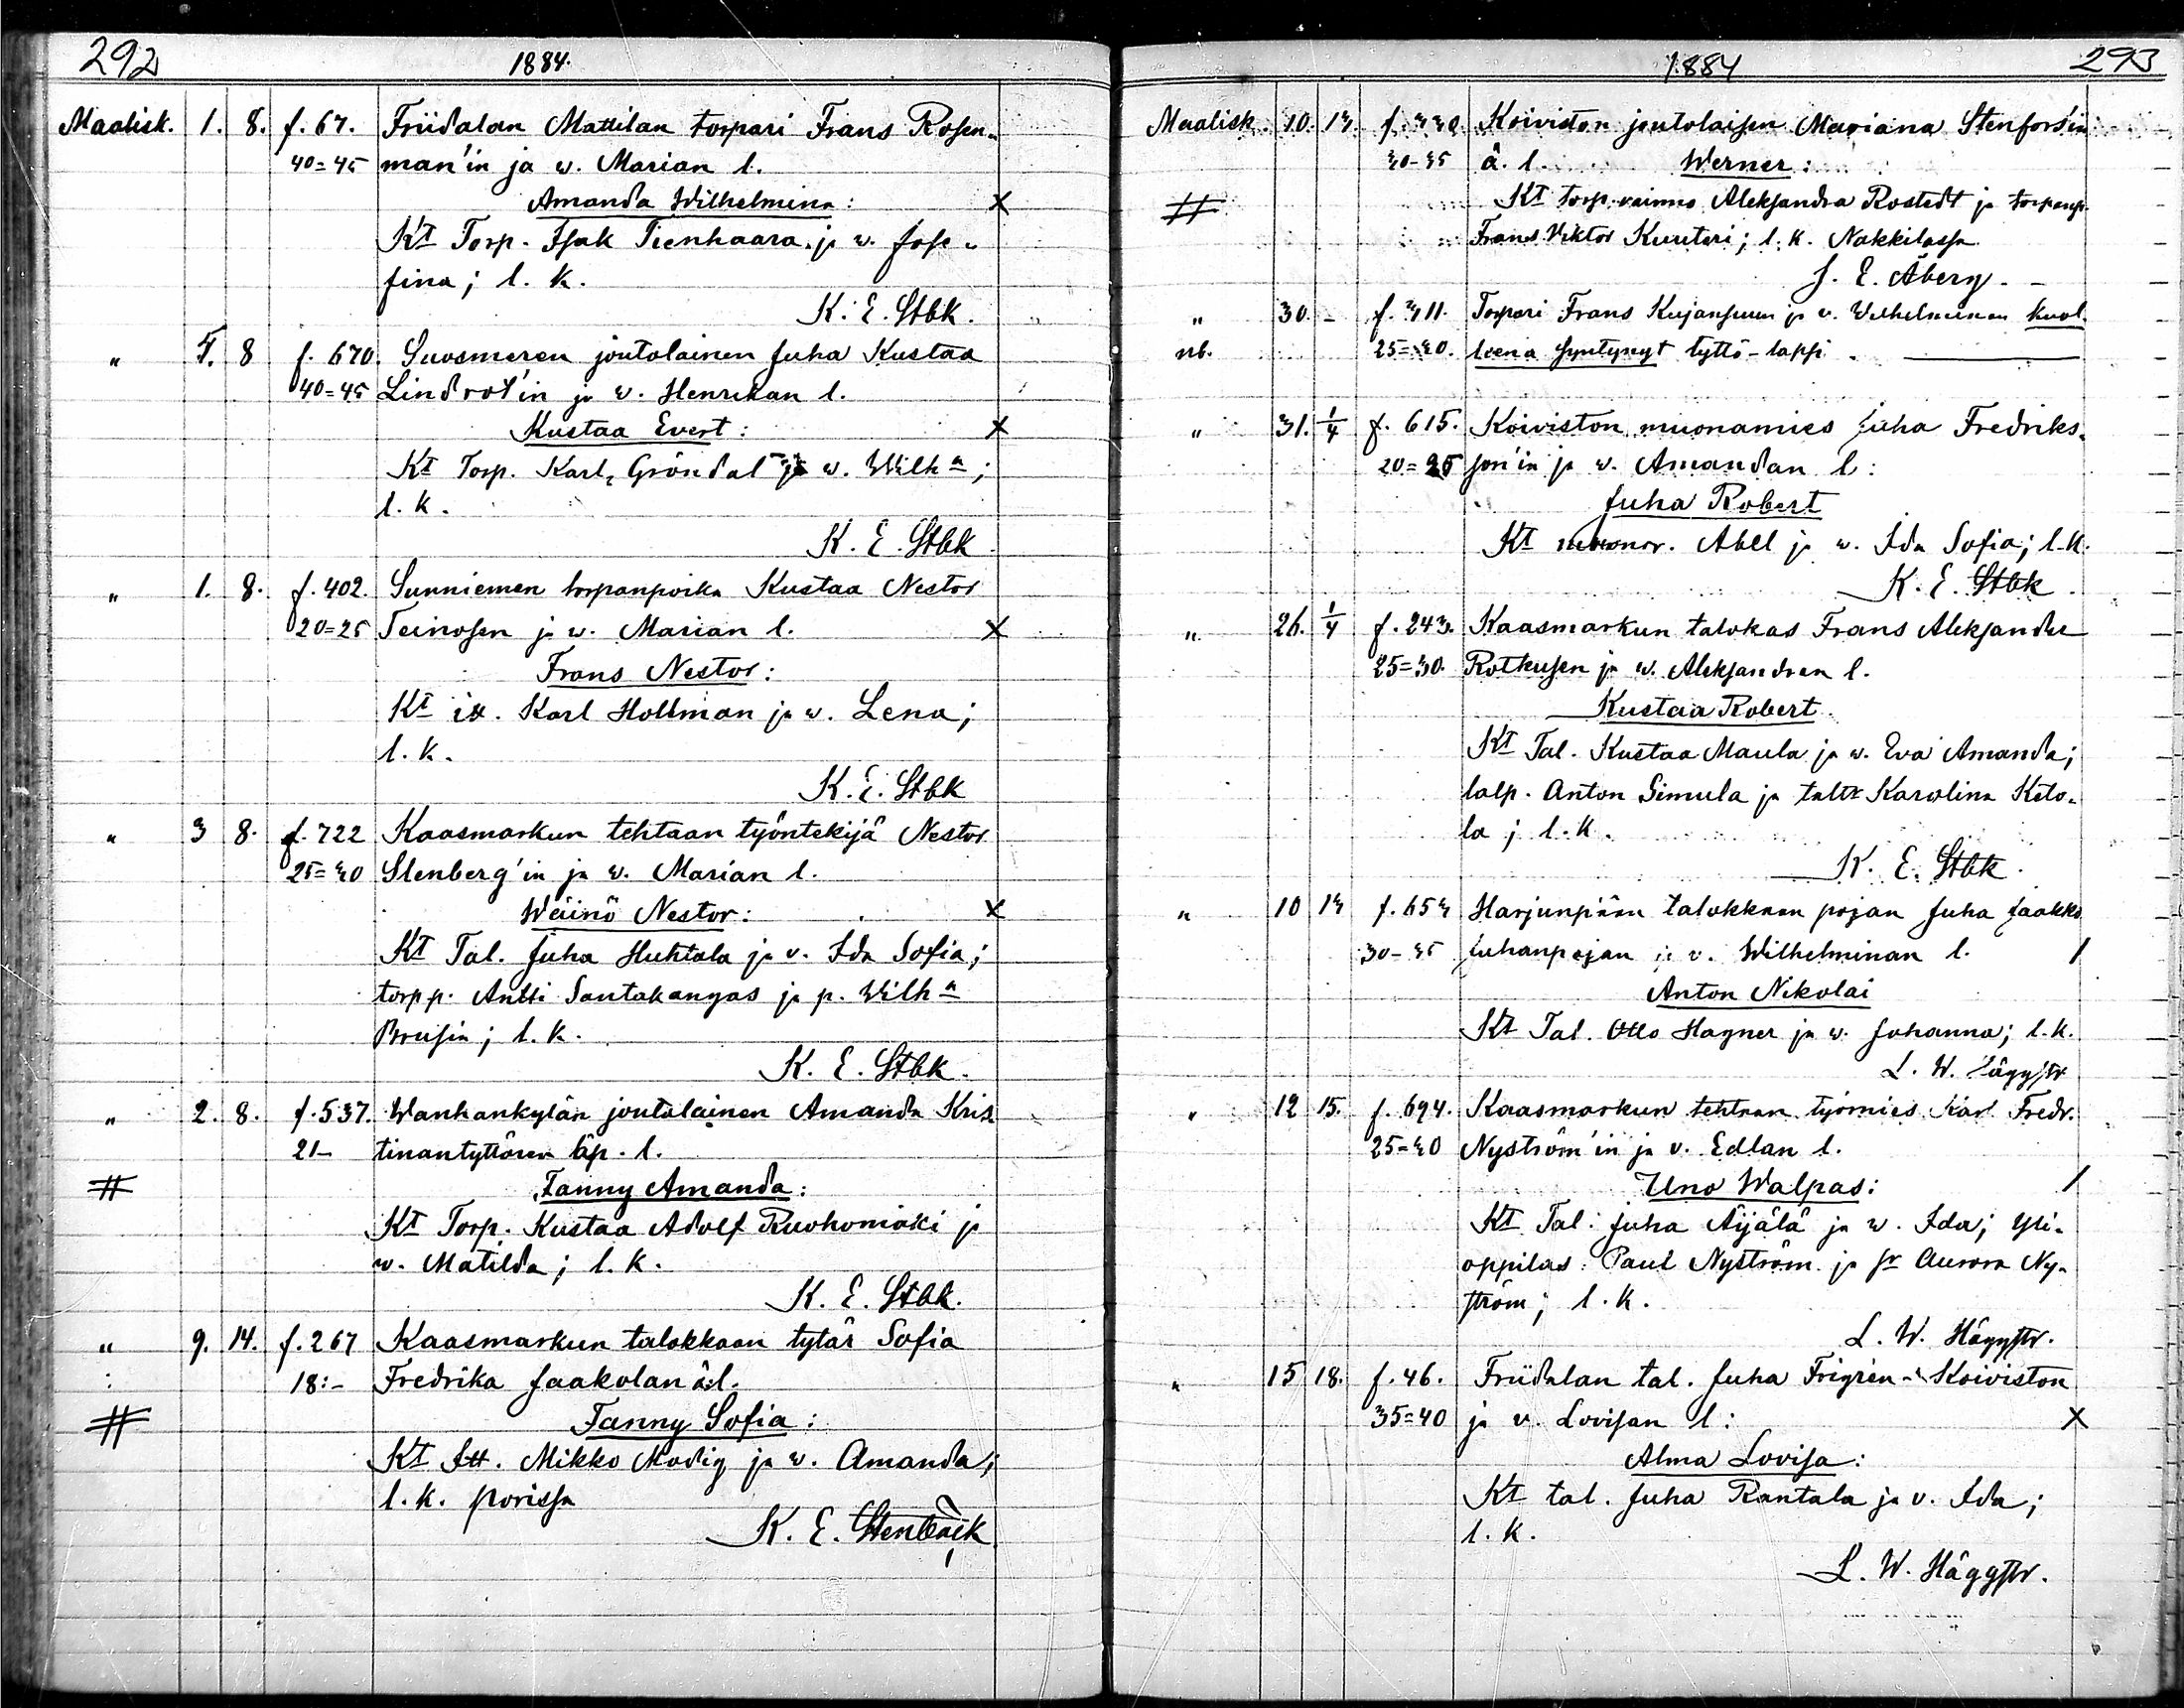 292
1884.
Maalisk. 1. 8. f. 67. Friidalan Mattilan torpari Frans Rosen-
40=45 man'in ja w. Marian l.
Amanda Wilhelmina: X
Kt Torp. Isak Tienhaara ja w. Jose-
fina; l. k.
K. E. Stbk.
" 5. 8 f. 670. Suosmeren joutolainen Juha Kustaa
40=45 Lindrot'in ja w. Henrikan l.
Kustaa Evert: X
Kt Torp. Karl Gröndal ja w. Wilha;
l. k.
K. E. Stbk.
" 1. 8. f. 402. Sunniemen torpanpoika Kustaa Nestor
20=25 Teinosen ja w. Marian l. X
Frans Nestor:
Kt itt. Karl Hollman ja w. Lena;
l. k.
K. E. Stbk
" 3 8. f. 722 Kaasmarkun tehtaan työntekijä Nestor
25=30 Stenberg'in ja w. Marian l.
Wäinö Nestor: X
Kt Tal. Juha Huhtala ja v. Ida Sofia;
torpp. Antti Santakangas ja p. Wilha
Brusin; l. k.
K. E. Stbk.
" 2. 8. f. 537. Wanhankylän joutolainen Amanda Kris
21- tinantyttären äp. l.
# Fanny Amanda:
Kt Torp. Kustaa Adolf Ruohomäki ja
w. Matilda; l. k.
K. E. Stbk.
" 9. 14. f. 267 Kaasmarkun talokkaan tytär Sofia
18:- Fredrika Jaakolan ä. l.
# Fanny Sofia:
Kt Itt. Mikko Modig ja w. Amanda;
l. k. Porissa
K. E. Stenbäck
1884
293
Maalisk. 10. 13. f. 332 Koiviston joutolaisen Mariana Stenfors'in
30-35 ä. l. Werner:
# Kt torp. vaimo Aleksandra Rostedt ja torpanp.
Frans Viktor Kuuteri; l. k. Nakkilassa
J. E. Åberg. -
" 30. - f. 311. Torpari Frans Kujansuun ja v. Wilhelminan kuol-
nb. 25=30. leena syntynyt tyttö-lapsi.
" 31. 1/4 f. 615. Koiviston muonamies Juha Fredriks-
20=25 son'in ja w. Amandan l:
Juha Robert
Kt muonar. Abel ja w. Ida Sofia; l. k.
K. E. Stbk.
" 26. 1/4 f. 243. Kaasmarkun talokas Frans Aleksander
25=30. Rotkusen ja w. Aleksandran l.
Kustaa Robert.
Kt Tal. Kustaa Maula ja w. Eva Amanda;
talp. Anton Simula ja taltr Karolina Keto-
la; l. k.
K. E. Stbk.
" 10 13 f. 653 Harjunpään talokkaan pojan Juha Jaakko
30-35 Juhanpojan ja v. Wilhelminan l. /
Anton Nikolai
Kt Tal. Otto Hagner ja w. Johanna; l. k.
L. W. Häggstr
" 12 15. f. 694. Kaasmarkun tehtaan työmies Karl Fredr.
25=30 Nyström'in ja v. Edlan l.
Uno Walpas: /
Kt Tal. Juha Äijälä ja w. Ida; yli-
oppilas Paul Nyström ja fr Aurora Ny-
ström; l. k.
L. W. Häggstr.
" 15 18. f. 46. Friidalan tal. Juha Frigrén - Koiviston
35=40 ja v. Lovisan l: X
Alma Lovisa:
Kt tal. Juha Rantala ja v. Ida;
l. k.
L. W. Häggstr.